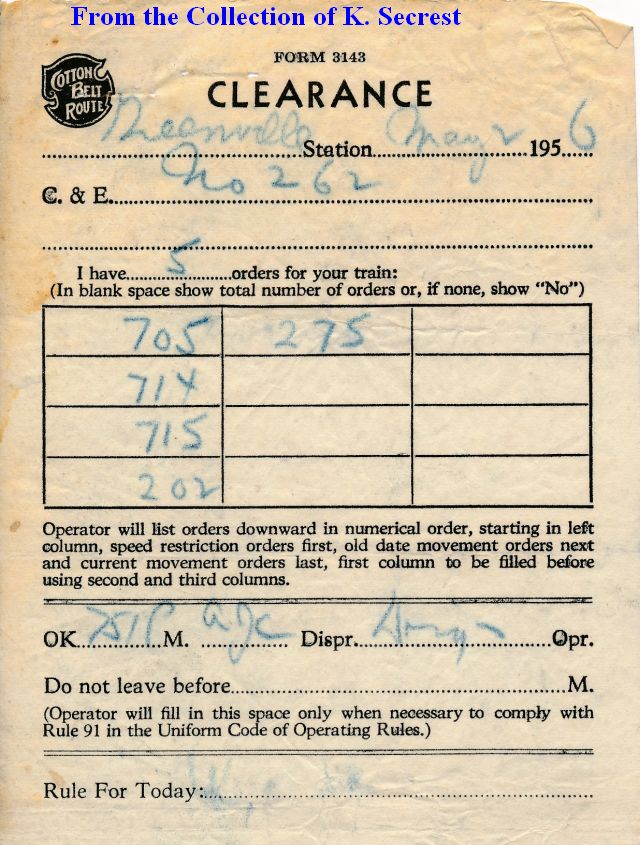 From the Collection of K. Secrest
FORM 3143
COTTON BELT ROUTE
CLEARANCE
Greenville Station May 2 1956
C. & E. No 262
I have 5 orders for your train:
(In blank space show total number of orders or, if none, show "No")
705 275
714
715
202
Operator will list orders downward in numerical order, starting in left
column, speed restriction orders first, old date movement orders next
and current movement orders last, first column to be filled before
using second and third columns.
OK M. Dispr. Opr.
Do not leave before M.
(Operator will fill in this space only when necessary to comply with
Rule 91 in the Uniform Code of Operating Rules.)
Rule For Today: